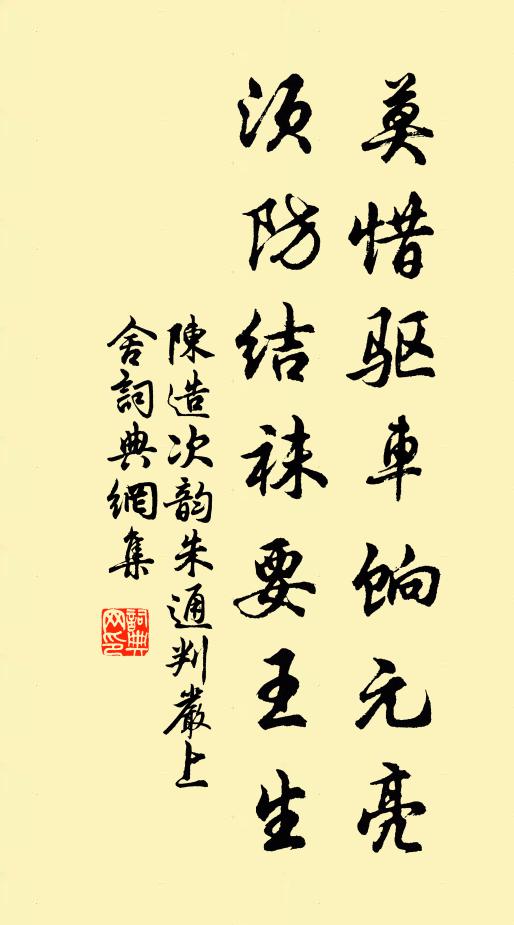 莫惜驱車餉元亮
须防结袜要王生
陳造次韵朱通判嚴上
舍詞典網集
詞典
网印